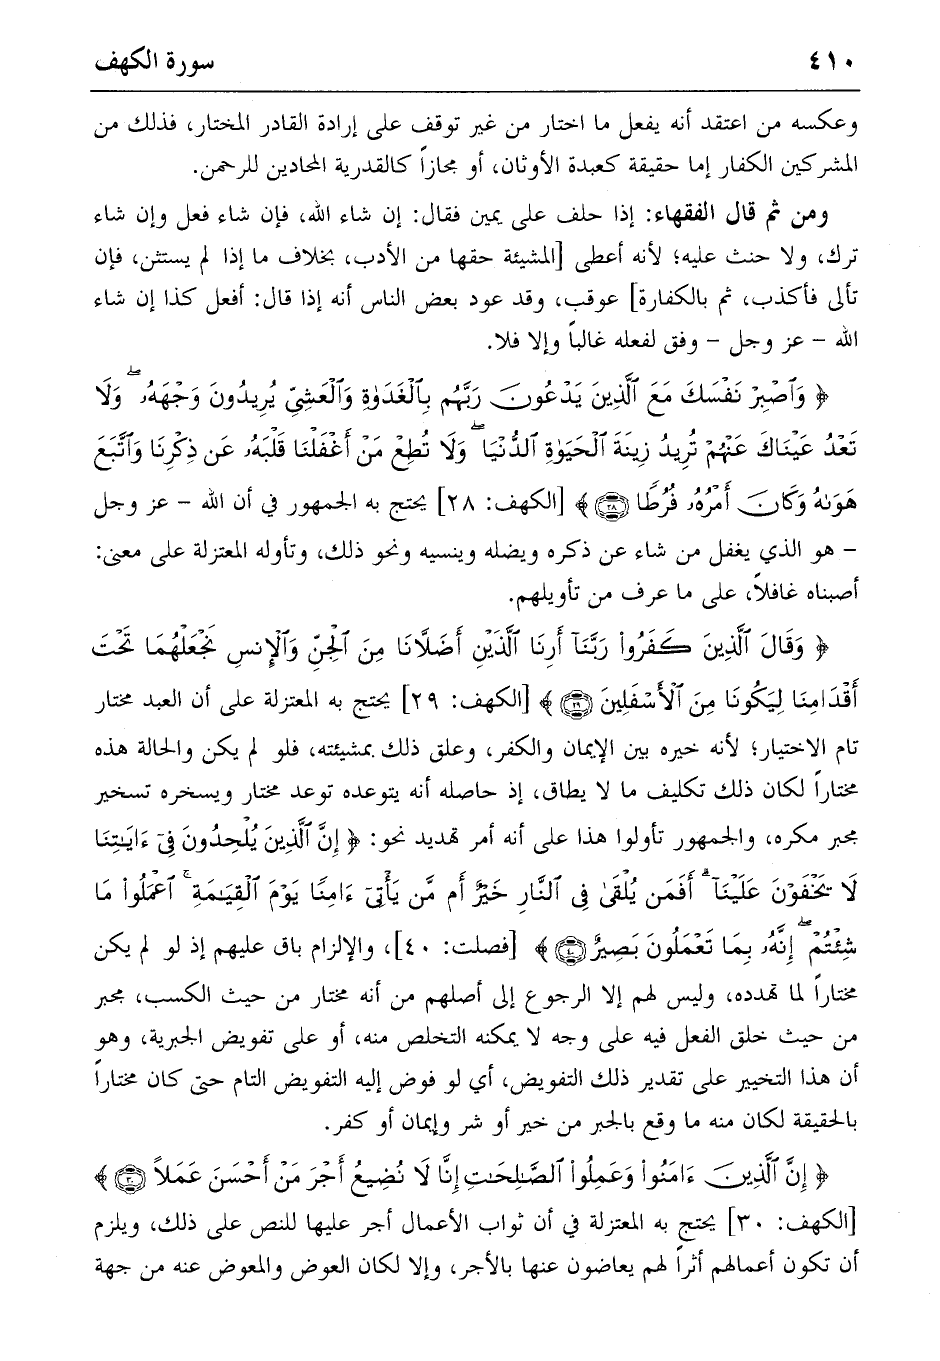 ٤١٠ سورة الكهف
وعكسه من اعتقد أنه يفعل ما اختار من غير توقف على إرادة القادر المختار، فذلك من
المشركين الكفار إما حقيقة كعبدة الأوثان، أو مجازاً كالقدرية المحادين للرحمن.
ومن ثم قال الفقهاء: إذا حلف على يمين فقال: إن شاء الله، فإن شاء فعل وإن شاء
ترك، ولا حنث عليه؛ لأنه أعطى [المشيئة حقها من الأدب، بخلاف ما إذا لم يستثن، فإن
تألى فأكذب، ثم بالكفارة] عوقب، وقد عود بعض الناس أنه إذا قال: أفعل كذا إن شاء
الله – عز وجل – وفق لفعله غالباً وإلا فلا.
﴿ وَٱصْبِرْ نَفْسَكَ مَعَ ٱلَّذِينَ يَدْعُونَ رَبَّهُم بِٱلْغَدَوٰةِ وَٱلْعَشِيِّ يُرِيدُونَ وَجْهَهُۥ ۖ وَلَا
تَعْدُ عَيْنَاكَ عَنْهُمْ تُرِيدُ زِينَةَ ٱلْحَيَوٰةِ ٱلدُّنْيَا ۖ وَلَا تُطِعْ مَنْ أَغْفَلْنَا قَلْبَهُۥ عَن ذِكْرِنَا وَٱتَّبَعَ
هَوَىٰهُ وَكَانَ أَمْرُهُۥ فُرُطًا ۝٢٨ ﴾ [الكهف: ٢٨] يحتج به الجمهور في أن الله – عز وجل
– هو الذي يغفل من شاء عن ذكره ويضله وينسيه ونحو ذلك، وتأوله المعتزلة على معنى:
أصبناه غافلاً، على ما عرف من تأويلهم.
﴿ وَقَالَ ٱلَّذِينَ كَفَرُوا۟ رَبَّنَآ أَرِنَا ٱلَّذَيْنِ أَضَلَّانَا مِنَ ٱلْجِنِّ وَٱلْإِنسِ نَجْعَلْهُمَا تَحْتَ
أَقْدَامِنَا لِيَكُونَا مِنَ ٱلْأَسْفَلِينَ ۝٢٩ ﴾ [الكهف: ٢٩] يحتج به المعتزلة على أن العبد مختار
تام الاختيار؛ لأنه خيره بين الإيمان والكفر، وعلق ذلك بمشيئته، فلو لم يكن والحالة هذه
مختاراً لكان ذلك تكليف ما لا يطاق، إذ حاصله أنه يتوعده توعد مختار ويسخره تسخير
مجبر مكره، والجمهور تأولوا هذا على أنه أمر تهديد نحو: ﴿ إِنَّ ٱلَّذِينَ يُلْحِدُونَ فِىٓ ءَايَـٰتِنَا
لَا يَخْفَوْنَ عَلَيْنَآ ۗ أَفَمَن يُلْقَىٰ فِى ٱلنَّارِ خَيْرٌ أَم مَّن يَأْتِىٓ ءَامِنًا يَوْمَ ٱلْقِيَـٰمَةِ ۚ ٱعْمَلُوا۟ مَا
شِئْتُمْ ۖ إِنَّهُۥ بِمَا تَعْمَلُونَ بَصِيرٌ ۝٤٠ ﴾ [فصلت: ٤٠]، والإلزام باق عليهم إذ لو لم يكن
مختاراً لما تهدده، وليس لهم إلا الرجوع إلى أصلهم من أنه مختار من حيث الكسب، مجبر
من حيث خلق الفعل فيه على وجه لا يمكنه التخلص منه، أو على تفويض الجبرية، وهو
أن هذا التخيير على تقدير ذلك التفويض، أي لو فوض إليه التفويض التام حتى كان مختاراً
بالحقيقة لكان منه ما وقع بالجبر من خير أو شر وإيمان أو كفر.
﴿ إِنَّ ٱلَّذِينَ ءَامَنُوا۟ وَعَمِلُوا۟ ٱلصَّـٰلِحَـٰتِ إِنَّا لَا نُضِيعُ أَجْرَ مَنْ أَحْسَنَ عَمَلًا ۝٣٠ ﴾
[الكهف: ٣٠] يحتج به المعتزلة في أن ثواب الأعمال أجر عليها للنص على ذلك، ويلزم
أن تكون أعمالهم أثراً لهم يعاضون عنها بالأجر، وإلا لكان العوض والمعوض عنه من جهة